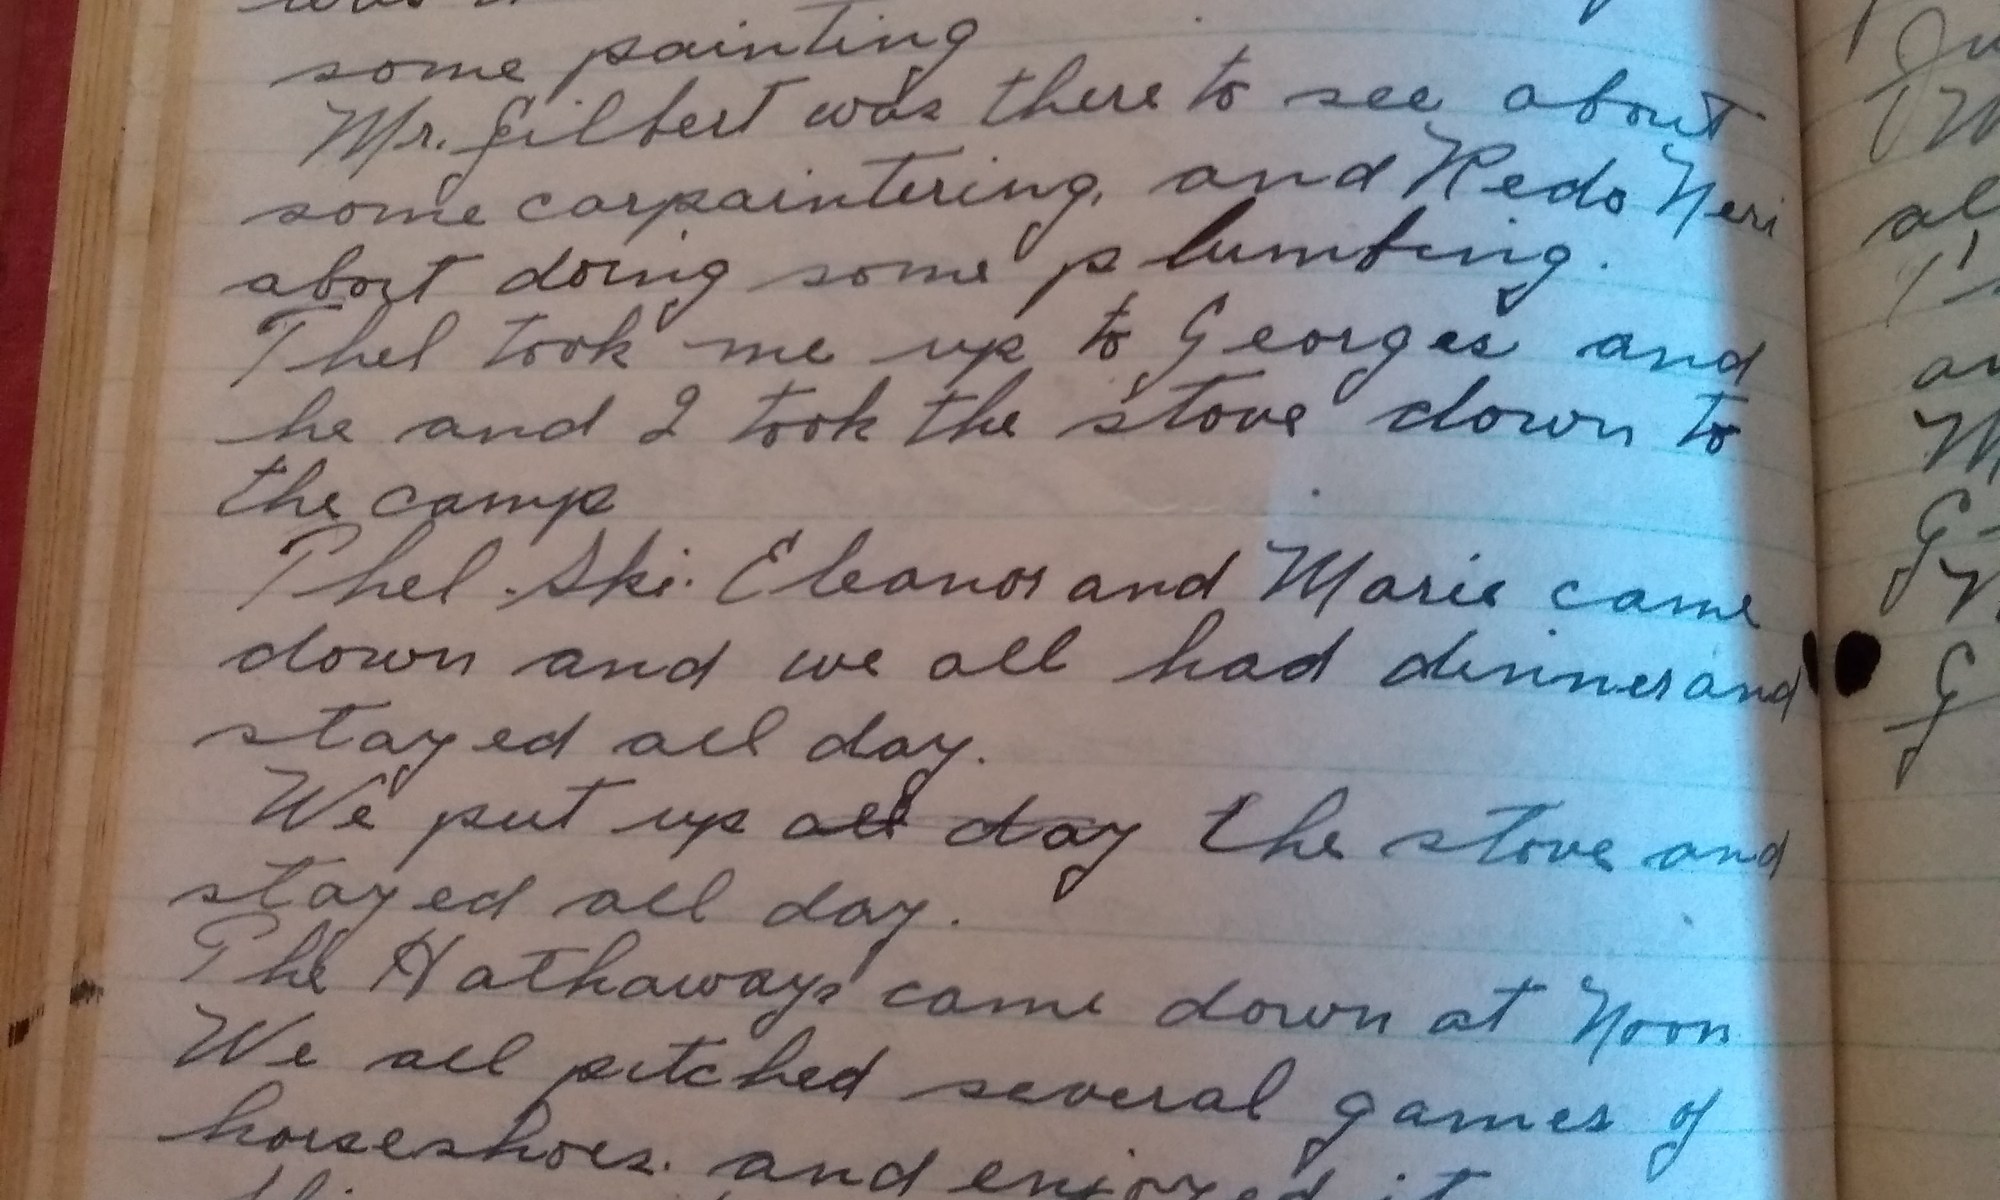 some painting
Mr. Gilbert was there to see about
some carpaintering, and Redo Neri
about doing some plumbing.
Thel took me up to Georges and
he and I took the stove down to
the camp
Thel. Ski. Eleanor and Marie came
down and we all had dinner and
stayed all day.
We put up all day the stove and
stayed all day.
The Hathaways came down at Noon
We all pitched several games of
horseshoes. and enjoyed it